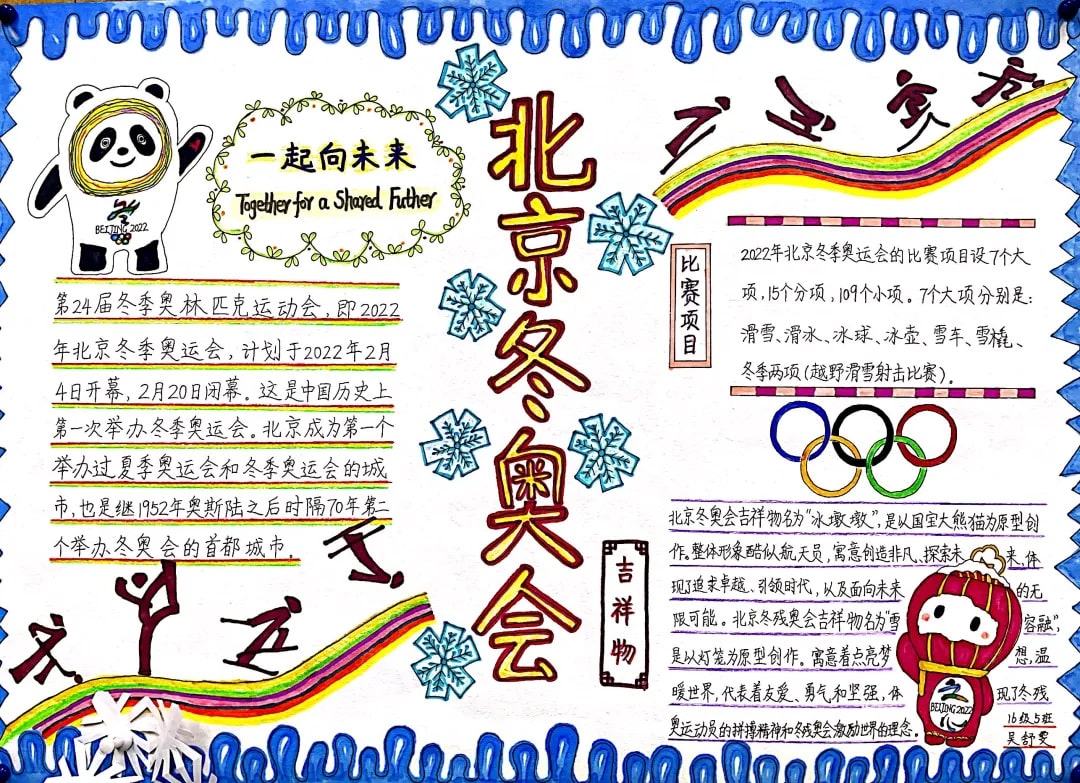 北京冬奥会
一起向未来
Together for a Shared Futher
BEIJING 2022
第24届冬季奥林匹克运动会，即2022
年北京冬季奥运会，计划于2022年2月
4日开幕，2月20日闭幕。这是中国历史上
第一次举办冬季奥运会。北京成为第一个
举办过夏季奥运会和冬季奥运会的城
市，也是继1952年奥斯陆之后时隔70年第二
个举办冬奥会的首都城市。
比赛项目
2022年北京冬季奥运会的比赛项目设7个大
项，15个分项，109个小项。7个大项分别是：
滑雪、滑冰、冰球、冰壶、雪车、雪橇、
冬季两项(越野滑雪射击比赛)。
吉祥物
北京冬奥会吉祥物名为“冰墩墩”，是从国宝大熊猫为原型创
作。整体形象酷似航天员，寓意创造非凡、探索未来，体
现了追求卓越、引领时代，以及面向未来的无
限可能。北京冬残奥会吉祥物名为“雪容融”，
是以灯笼为原型创作。寓意着点亮梦想，温
暖世界，代表着友爱、勇气和坚强，体现了冬残
奥运动员的拼搏精神和冬残奥会激励世界的理念。
BEIJING 2022
16级5班
吴舒雯